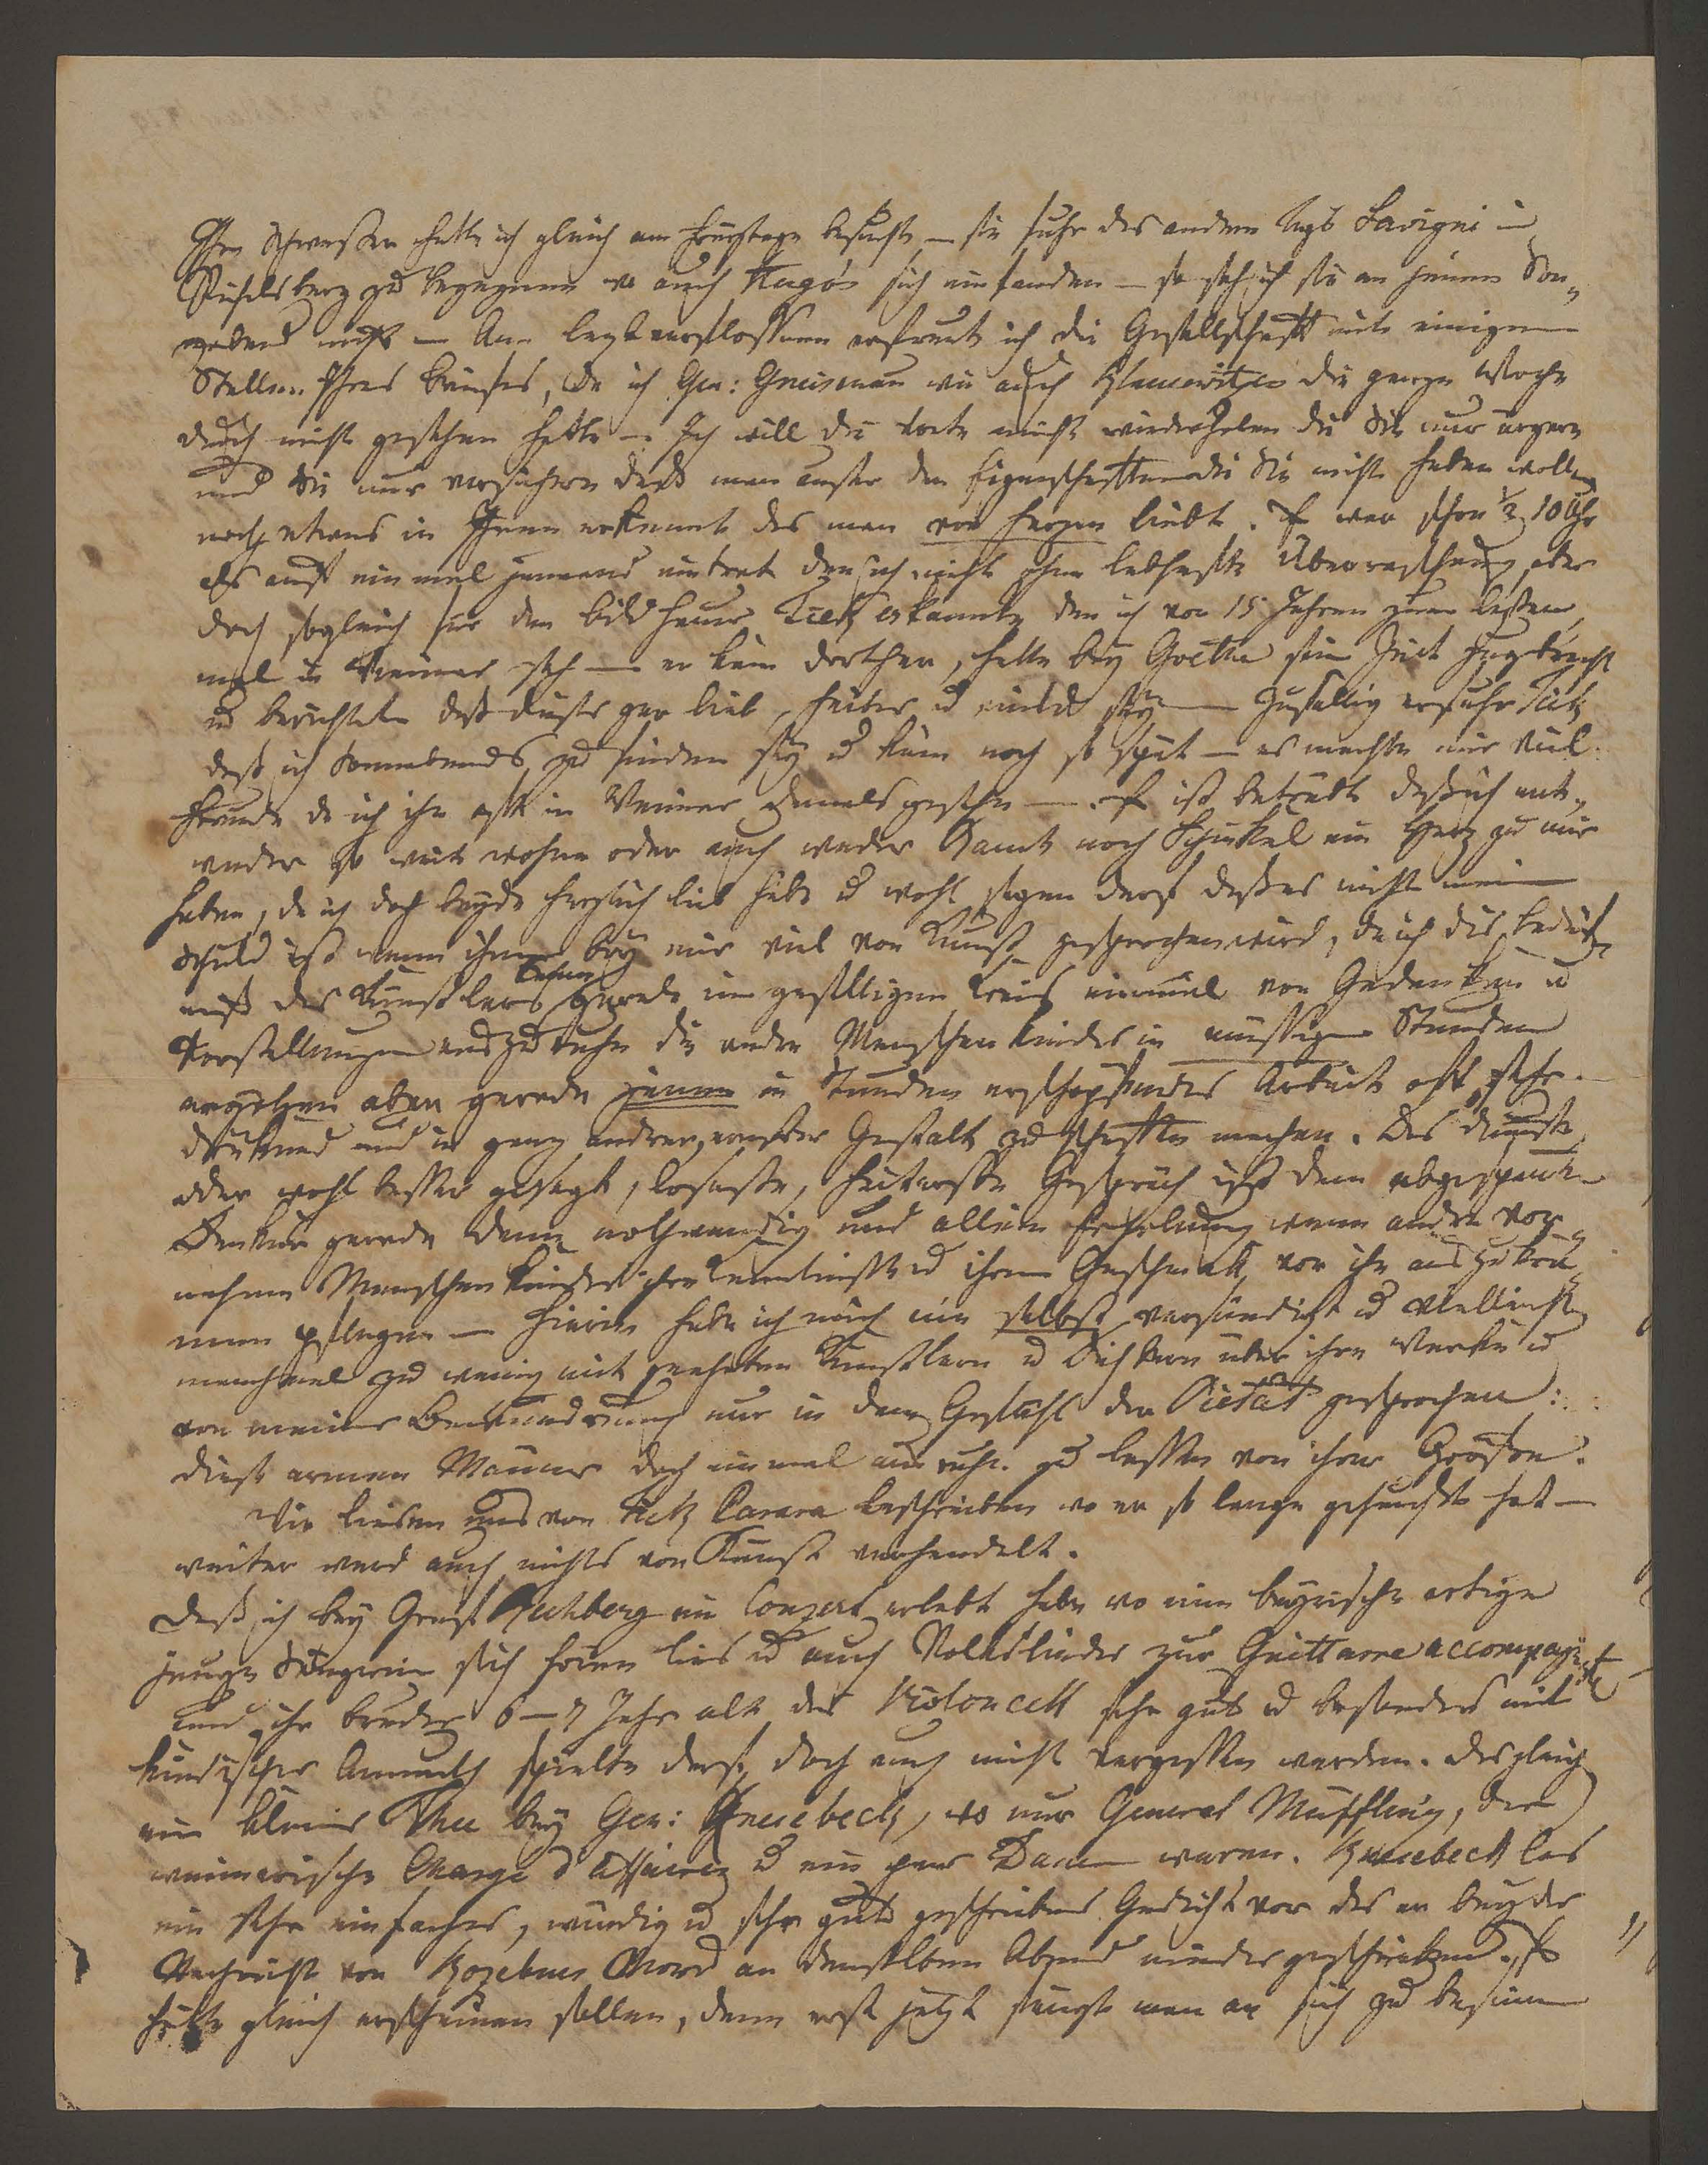 Ihre Schwester hatte ich gleich am Freytage besucht — sie fuhr des andern Tags Savigni in
Pichelsberg zu begegnen wo auch Hugo's sich einfanden — so sah ich sie an jenem Son„
nabend nicht — Am leztverflossenen erfreut ich die Gesellschaft mit einigen
Stellen Ihres briefes, da ich Gen: Gneisenau wie auch Klausewitzes die ganze Woche
durch nicht gesehen hatte — Ich will die Worte nicht wiederholen die Sie nur ärgern
und Sie nur versichern daß man ausser den Eigenschaften die Sie nicht haben wollen
noch etwas in Ihnen erkennt das man von herzen liebt. Es war schon ½ 10 Uhr
als auf ein mal jemand eintrat den ich nicht ohne lebhafte Überraschung, aber
doch sogleich für den bildhauer Tiek erkannte, den ich vor 15 Jahren zum lezten
mal in Weimar sah — er kam dorther, hatte bey Goethe seine Zeit zugebracht
u berichtete daß dieser gar lieb, heiter u milde sey — Zufällig erfuhr Tiek
daß ich Sonnabends zu finden sey u kam noch so spät — es machte mir viel
Freude da ich ihn oft in Weimar damals gesehn — Es ist betrübt daß ich ent„
weder so weit wohne oder auch weder Rauch noch Schinkel ein Herz zu mir
haben, da ich doch beyde herzlich lieb habe u wohl sagen darf daß es nicht meine
Schuld ist wenn ihnen bey mir viel von Kunst gesprochen wird, da ich das bedürf„
niß des Künstlers kenne gerade im geselligen Kreis einmal von Gedanken u
Vorstellungen auszuruhn die andre Menschenkinder in müssigen Stunden
ergötzen aber gerade jenen in Stunden erschöpfender Arbeit oft sehr
drükend und in ganz andrer, ernster Gestalt zu schaffen machen. Das dümste
oder wohl besser gesagt, loseste, heiterste Gespräch ist dem abgespannten
Denker gerade dann nothwendig und allein Erholung wenn andre vor„
nehme Menschenkinder ihre Kenntnisse u ihren Geschmack vor ihm auszukra„
men pflegen — hierin habe ich mich nie selbst versündigt u vielleicht
manchmal zu wenig mit geehrten Künstlern u Dichtern über ihre Werke u
von meiner Bewunderung nur in dem Gefühl der Pietät gesprochen:
diese armen Männer doch einmal ausruhn zu lassen von ihrer Größe.
Wir liesen uns von Tiek Carara beschreiben wo er so lange gehaust hat —
weiter ward auch nichts von Kunst verhandelt.
Daß ich bey Graf Rechberg ein Conzert erlebt habe wo eine bayrische artige
junge Sängerin sich hören lies u auch Volkslieder zur Guittarre accompagnirt
und ihr bruder 6—7 Jahr alt das Violoncell sehr gut u besonders mit
kindischer Anmuth spielte darf doch auch nicht vergessen werden. Desgleichen
ein kleines Thee bey Gen: Knesebeck, wo nur General Müffling, der
weimarische Charge d'Affaires u ein paar Damen waren. Knesebeck las
ein sehr einfaches, würdig u sehr gut geschriebnes Gedicht vor das er bey der
Nachricht von Kozebues Mord an demselben Abend niedergeschrieben. Es
hätte gleich erscheinen sollen, denn erst jetzt fängt man an sich zu besinnen